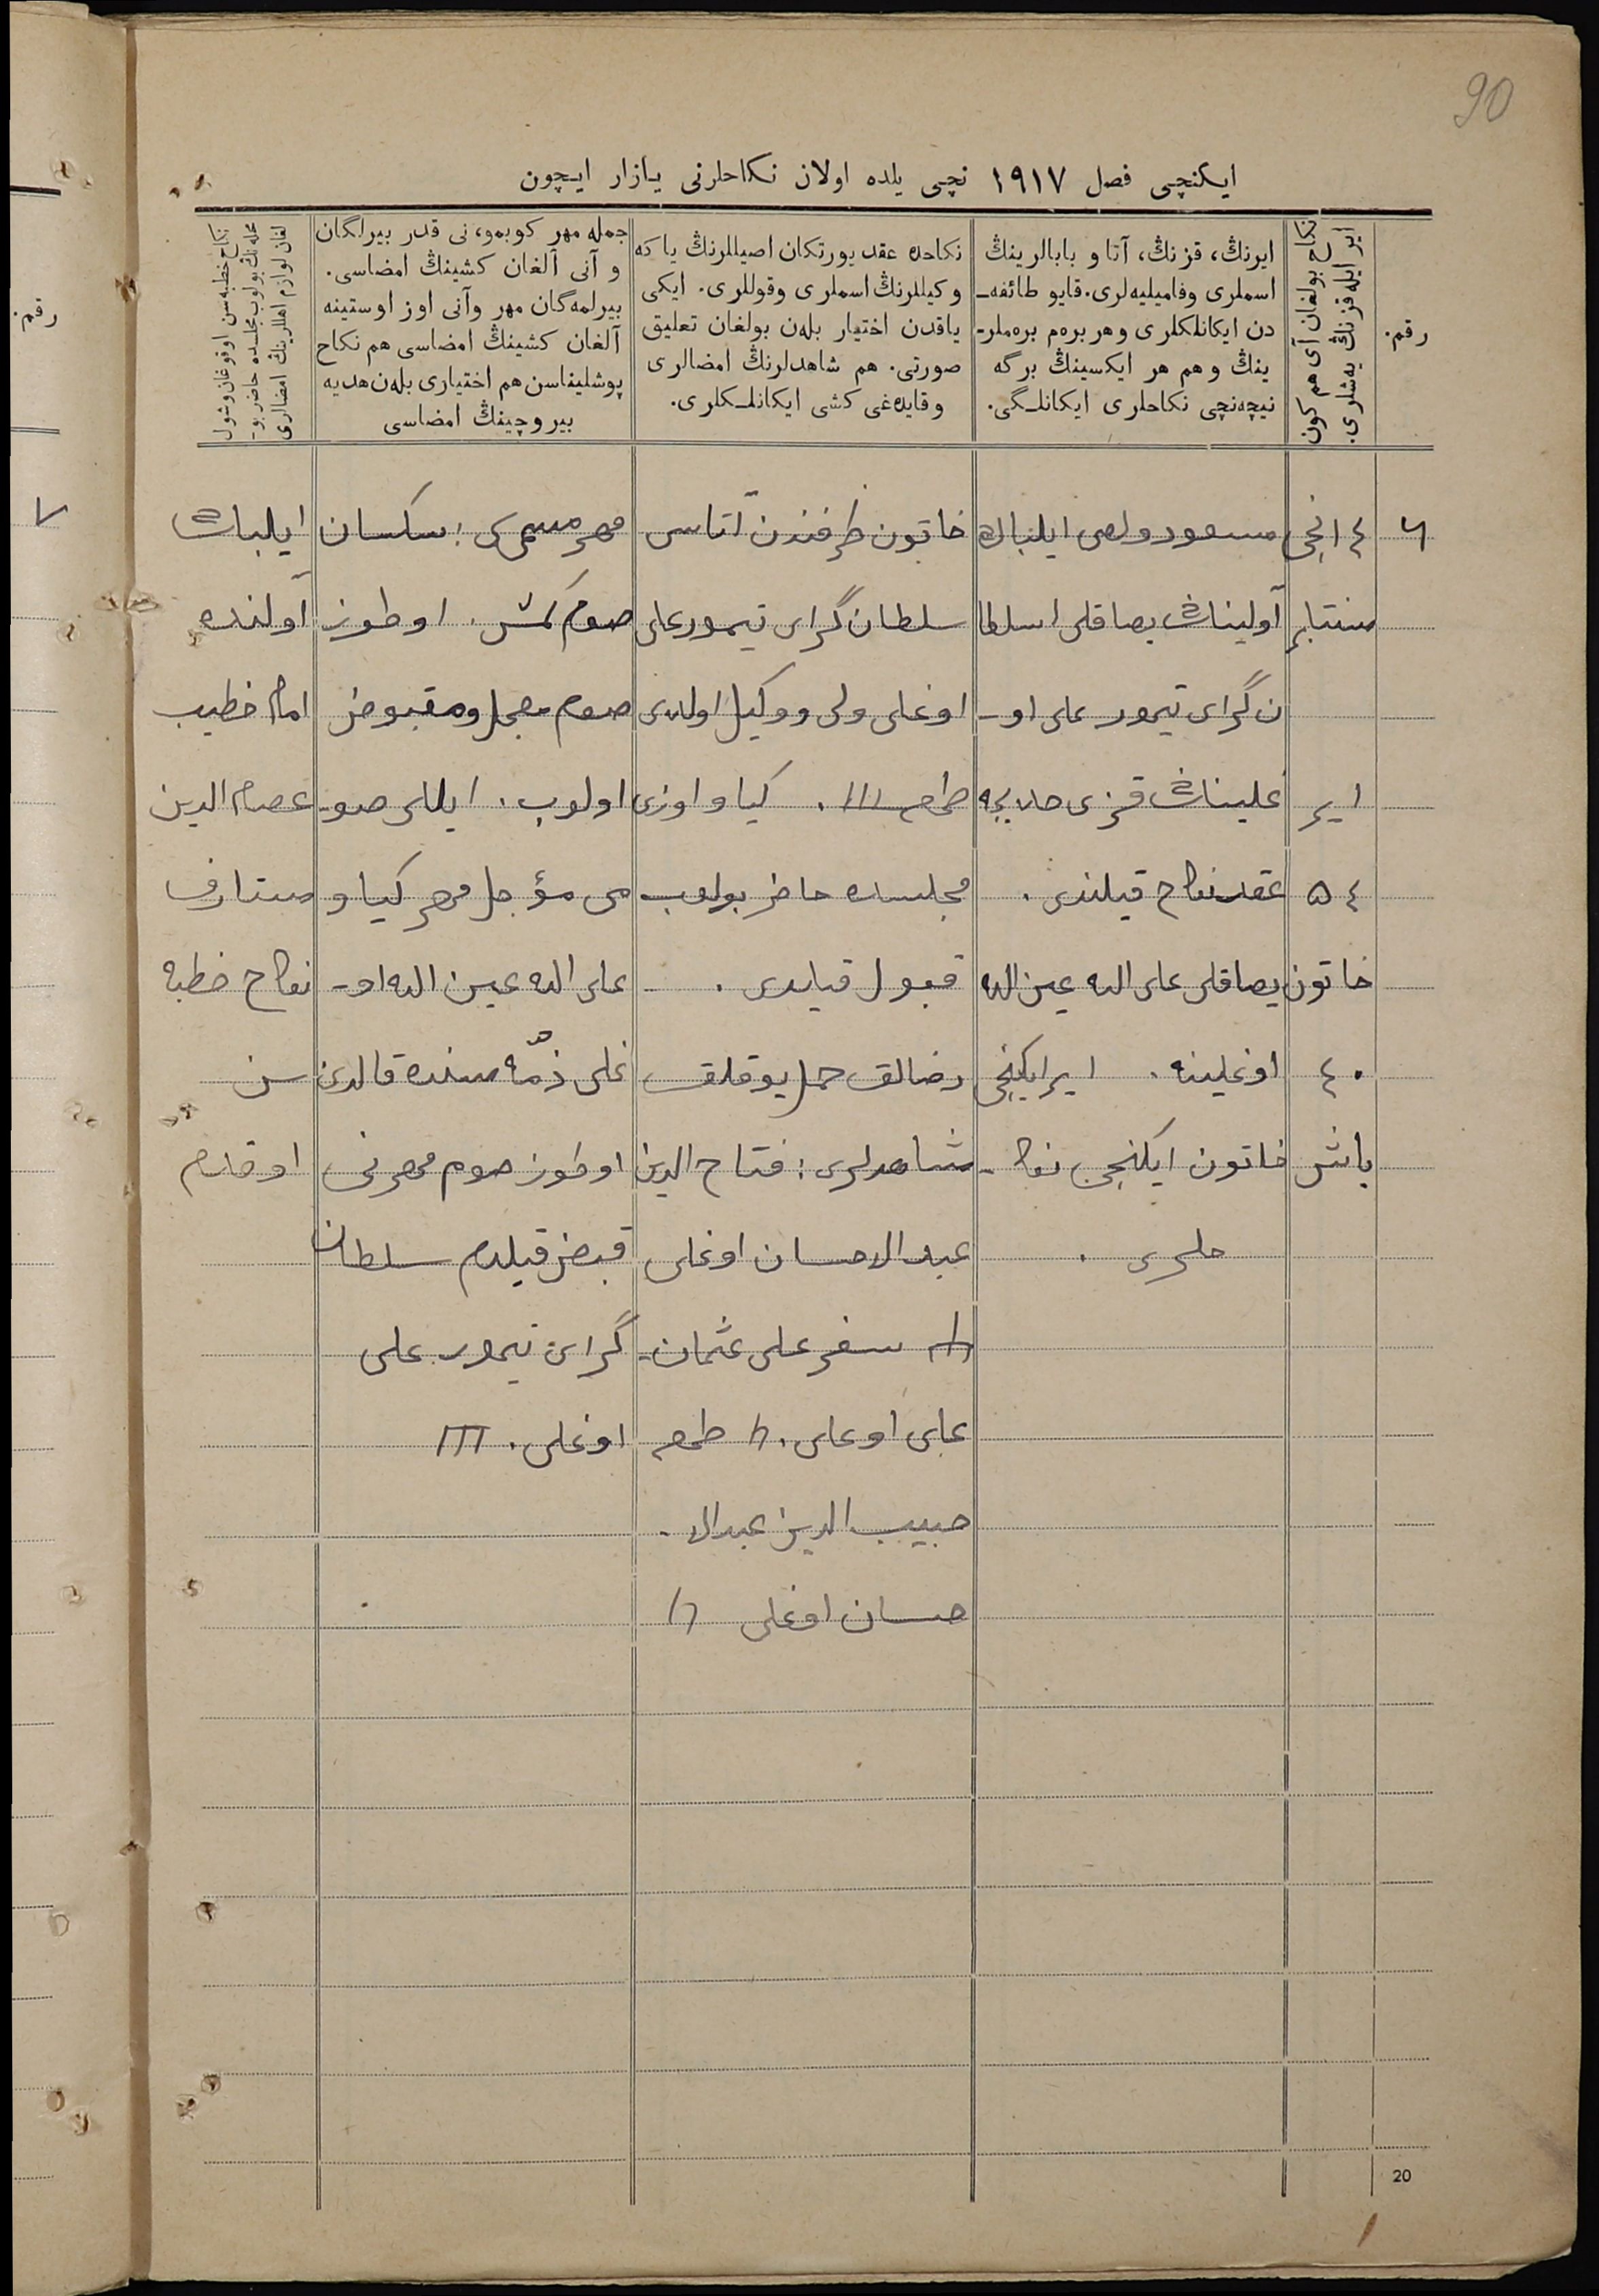 90
ایکنچی فصل ١٩١٧ نچی یلده اولان نکاحلرنی یازار ایچون
رقم.
نکاح بولغان آی هم کون
ایر ایله قزنڭ یه‌شلری.
ایرنڭ، قزنڭ، آتا و بابالرینڭ
اسملری وفامیلیه‌لری. قایو طائفه‌ـ
دن ایکانلکلری وهر بره‌م بره‌ملرـ
ینڭ و هم هر ایکسینڭ برگه
نیچه‌نچی نکاحلری ایکانلـگی.
نکاحده عقد یورتکان اصیللرنڭ یا که
وکیللرنڭ اسملری وقوللری. ایکی
یاقدن اختیار بله‌ن بولغان تعلیق
صورتی. هم شاهدلرنڭ امضالری
وقایده‌غی کشی ایکانلـکلری.
جمله مهر کوبمو، نی قدر بیرلگان
و آنی آلغان کشینڭ امضاسی.
بیرلمه‌گان مهر وآنی اوز اوستینه
آلغان کشینڭ امضاسی هم نکاح
پوشلیناسن هم اختیاری بله‌ن هدیه
بیروچینڭ امضاسی
نکاح خطبه‌سن اوقوغان وشول
محله‌نڭ بولوب مجلسده حاضر بوـ
لغان لوازم اهللرینڭ امضالری
٦
١٤ نچی
سنتابر
ایر
٥٤
خاتون
٤٠
یاش
مسعود ولصی ایلباك
آولیناڭ یصاقلی سلطا
ن گرای تیمور علی اوـ
غلیناڭ قزی خدیجه
عقد نکاح قیلندی.
یصاقلی علی الله عین الله
اوغلینه. ایر ایکنچی
خاتون ایکنچی نکاـ
حلری.
خاتون طرفندن آتاسی
سلطان گرای تیمور علی
اوغلی ولی ووکیل اولدی
طمعه III. کیاو اوزی
مجلسده حاضر بولوب
قبول قیلدی.
رضالق حمل یوقلق
شاهدلری: فتاح الدین
عبدالاحسان اوغلی
سفر علی عثمان
علی اوغلی. طمعه
حبیب الدین عبدالاـ
حسان اوغلی
مهر مسمی: سکسان
صوم کمش. اوطوز
صوم معجل ومقبوض
اولوب. ایللی صوـ
می مؤجل مهر کیاو
علی الله عین الله اوـ
غلی ذمّه سنده قالدی
اوطوز صوم مهرنی
قبض قیلدم سلطان
گرای تیمور علی
اوغلی. III
ایلباك
آولنده
امام خطیب
عصام الدین
نکاح خطبه
سن
اوقدم
20
رقم.
٧